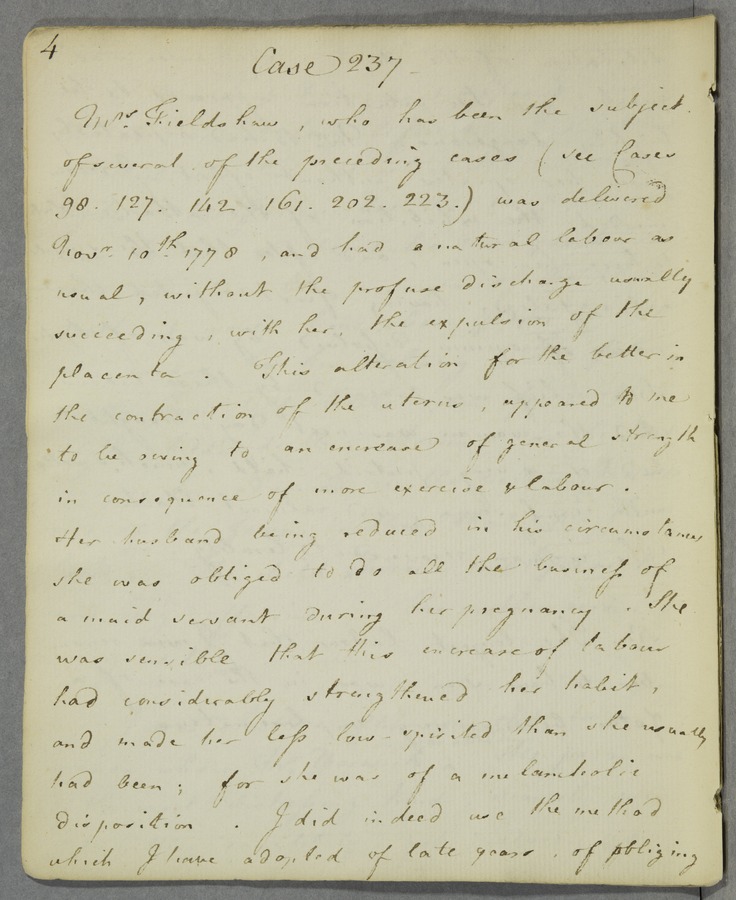 4
Case 237
Mrs. Fieldshaw, who has been the subject
of several of the preceding cases (see Cases
98. 127. 142. 161. 202. 223.) was delivered
Novr. 10th 1778, and had a natural labour as
usual, without the profuse discharge usually
succeeding, with her, the expulsion of the
placenta. This alteration for the better in
the contraction of the uterus, appeared to me
to be owing to an encrease of general strength
in consequence of more exercise & labour.
Her husband being reduced in his circumstances
she was obliged to do all the business of
a maid servant during her pregnancy. She
was sensible that this encrease of labour
had considerably strengthened her habit,
and made her less low-spirited than she usually
had been; for she was of a melancholic
disposition. I did indeed use the method
which I have adopted of late years, of obliging